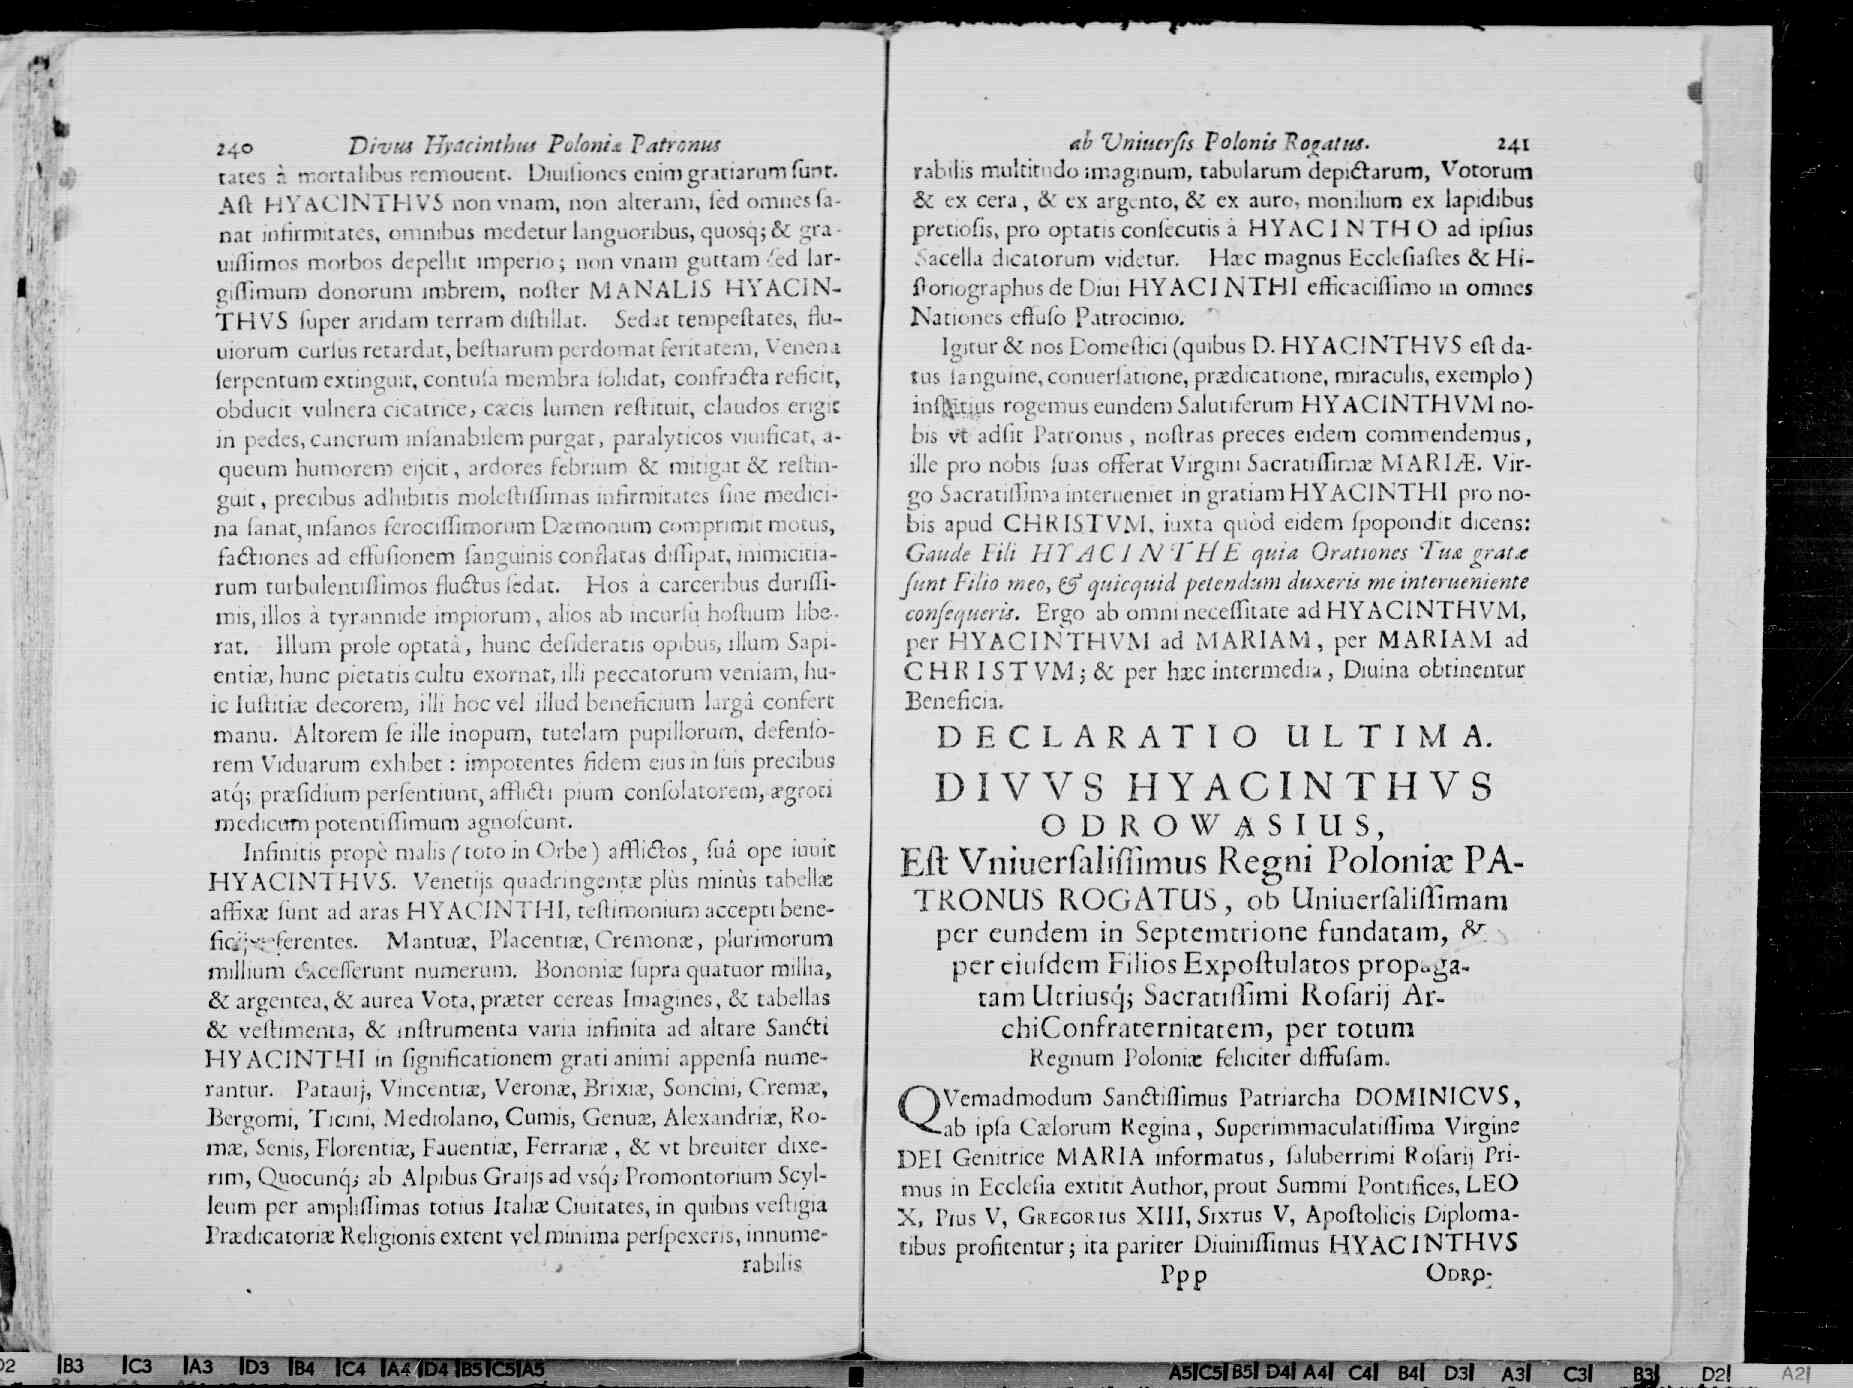 240 Divus Hyacinthus Poloniæ Patronus
tates à mortalibus remouent. Diuiſiones enim gratiarum ſunt.
Aſt HYACINTHVS non vnam, non alteram, ſed omnes ſa-
nat infirmitates, omnibus medetur languoribus, quosq́; & gra-
uiſſimos morbos depellit imperio; non vnam guttam ſed lar-
giſſimum donorum imbrem, noſter MANALIS HYACIN-
THVS ſuper aridam terram diſtillat. Sedat tempeſtates, flu-
uiorum curſus retardat, beſtiarum perdomat feritatem, Venena
ſerpentum extinguit, contuſa membra ſolidat, confracta reficit,
obducit vulnera cicatrice, cæcis lumen reſtituit, claudos erigit
in pedes, cancrum inſanabilem purgat, paralyticos viuificat, a-
queum humorem eijcit, ardores febrium & mitigat & reſtin-
guit, precibus adhibitis moleſtiſſimas infirmitates ſine medici-
na ſanat, inſanos ferociſſimorum Dæmonum comprimit motus,
factiones ad effuſionem ſanguinis conflatas diſſipat, inimicitia-
rum turbulentiſſimos fluctus ſedat. Hos à carceribus duriſſi-
mis, illos à tyrannide impiorum, alios ab incurſu hoſtium libe-
rat. Illum prole optatâ, hunc deſideratis opibus, illum Sapi-
entiæ, hunc pietatis cultu exornat, illi peccatorum veniam, hu-
ic Iuſtitiæ decorem, illi hoc vel illud beneficium largâ confert
manu. Altorem ſe ille inopum, tutelam pupillorum, defenſo-
rem Viduarum exhibet : impotentes fidem eius in ſuis precibus
atq́; præſidium perſentiunt, afflicti pium conſolatorem, ægroti
medicum potentiſſimum agnoſcunt.
Infinitis propè malis (toto in Orbe) afflictos, ſuâ ope iuuit
HYACINTHVS. Venetijs quadringentæ plùs minùs tabellæ
affixæ ſunt ad aras HYACINTHI, teſtimonium accepti bene-
ficij referentes. Mantuæ, Placentiæ, Cremonæ, plurimorum
millium exceſſerunt numerum. Bononiæ ſupra quatuor millia,
& argentea, & aurea Vota, præter cereas Imagines, & tabellas
& veſtimenta, & inſtrumenta varia infinita ad altare Sancti
HYACINTHI in ſignificationem grati animi appenſa nume-
rantur. Patauij, Vincentiæ, Veronæ, Brixiæ, Soncini, Cremæ,
Bergomi, Ticini, Mediolano, Cumis, Genuæ, Alexandriæ, Ro-
mæ, Senis, Florentiæ, Fauentiæ, Ferrariæ, & vt breuiter dixe-
rim, Quocunq́; ab Alpibus Graijs ad vsq́; Promontorium Scyl-
leum per ampliſſimas totius Italiæ Ciuitates, in quibus veſtigia
Prædicatoriæ Religionis extent vel minima perſpexeris, innume-
rabilis
ab Uniuerſis Polonis Rogatus. 241
rabilis multitudo imaginum, tabularum depictarum, Votorum
& ex cera, & ex argento, & ex auro, monilium ex lapidibus
pretioſis, pro optatis conſecutis à HYACINTHO ad ipſius
Sacella dicatorum videtur. Hæc magnus Eccleſiaſtes & Hi-
ſtoriographus de Diui HYACINTHI efficaciſſimo in omnes
Nationes effuſo Patrocinio.
Igitur & nos Domeſtici (quibus D. HYACINTHVS eſt da-
tus ſanguine, conuerſatione, prædicatione, miraculis, exemplo)
rogemus eundem Salutiferum HYACINTHVM no-
bis vt adſit Patronus, noſtras preces eidem commendemus,
ille pro nobis ſuas offerat Virgini Sacratiſſimæ MARIÆ. Vir-
go Sacratiſſima interueniet in gratiam HYACINTHI pro no-
bis apud CHRISTVM, iuxta quòd eidem ſpopondit dicens:
Gaude Fili HYACINTHE quia Orationes Tuæ gratæ
ſunt Filio meo, & quicquid petendum duxeris me interueniente
conſequeris. Ergo ab omni neceſſitate ad HYACINTHVM,
per HYACINTHVM ad MARIAM, per MARIAM ad
CHRISTVM; & per hæc intermedia, Diuina obtinentur
Beneficia.
DECLARATIO ULTIMA.
DIVVS HYACINTHVS
ODROWASIUS,
Eſt Vniuerſaliſſimus Regni Poloniæ PA-
TRONUS ROGATUS, ob Uniuerſaliſſimam
per eundem in Septemtrione fundatam, &
per eiuſdem Filios Expoſtulatos propaga-
tam Utriusq́; Sacratiſſimi Roſarij Ar-
chiConfraternitatem, per totum
Regnum Poloniæ feliciter diffuſam.
QVemadmodum Sanctiſſimus Patriarcha DOMINICVS,
ab ipſa Cælorum Regina, Superimmaculatiſſima Virgine
DEI Genitrice MARIA informatus, ſaluberrimi Roſarij Pri-
mus in Eccleſia extitit Author, prout Summi Pontifices, LEO
X, Pius V, GREGORIUS XIII, SIXTUS V, Apoſtolicis Diploma-
tibus profitentur; ita pariter Diuiniſſimus HYACINTHVS
Ppp ODRO-
D2 B3 C3 A3 D3 B4 C4 A4 D4 B5 C5 A5 A5 C5 B5 D4 A4 C4 B4 D3 A3 C3 B3 D2 A2